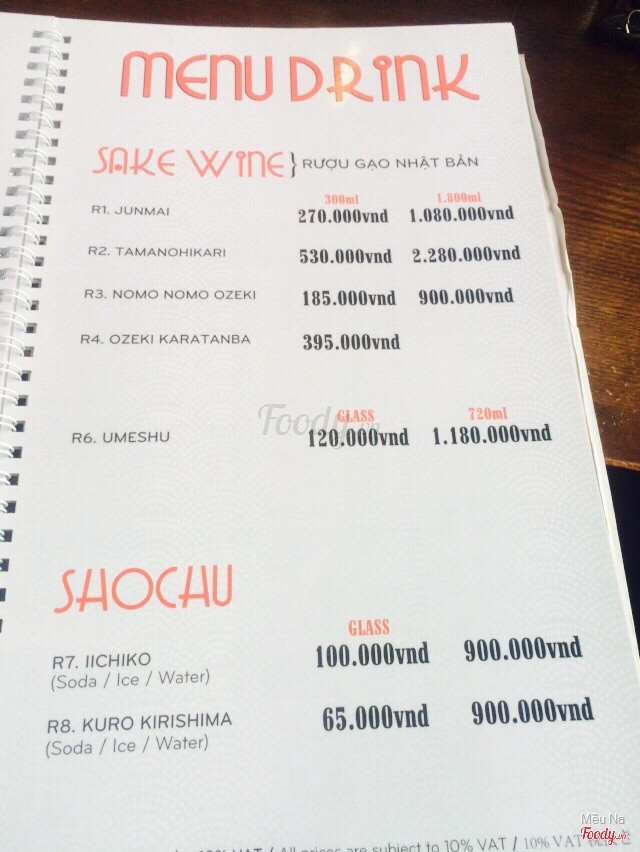 MENU DRINK
SAKE WINE } RƯỢU GẠO NHẬT BẢN
300ml 1.800ml
R1. JUNMAI 270.000vnd 1.080.000vnd
R2. TAMANOHIKARI 530.000vnd 2.280.000vnd
R3. NOMO NOMO OZEKI 185.000vnd 900.000vnd
R4. OZEKI KARATANBA 395.000vnd
GLASS 720ml
Foody.vn
R6. UMESHU 120.000vnd 1.180.000vnd
SHOCHU
GLASS
R7. IICHIKO 100.000vnd 900.000vnd
(Soda / Ice / Water)
R8. KURO KIRISHIMA 65.000vnd 900.000vnd
(Soda / Ice / Water)
Mều Na
Foody.vn
10% VAT / All prices are subject to 10% VAT / 10% VAT